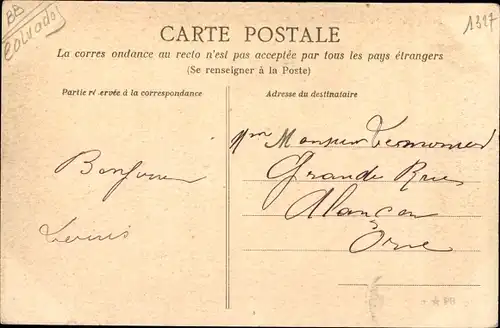 BB
Calvados
1327
CARTE POSTALE
La corres ondance au recto n'est pas acceptée par tous les pays étrangers
(Se renseigner à la Poste)
Partie réservée à la correspondance
Adresse du destinataire
Monsieur
Grande Rue
Bonjour
Alançon
Louis
Orne